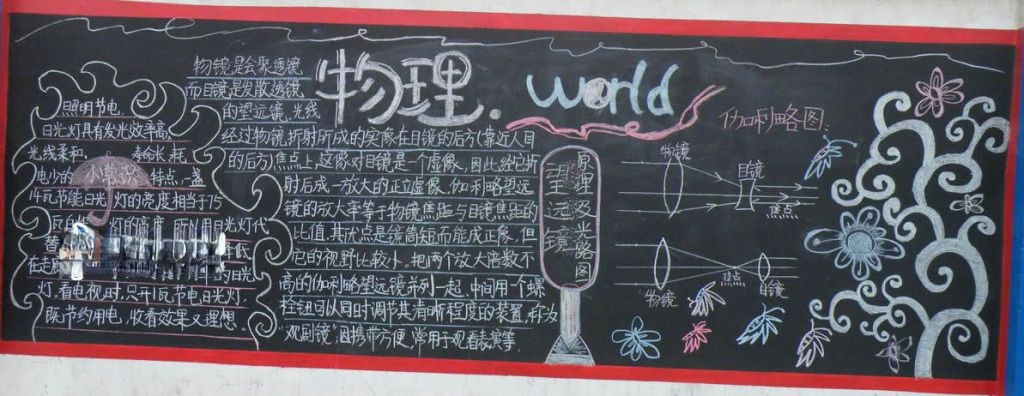 物理.
world
照明节电
日光灯具有发光效率高,
光线柔和, 寿命长,耗
电少的 特点,一盏
小常识
14瓦节能日光灯的亮度相当于75
灯的亮度 所以用日光灯代
替
在走
灯,看电视时,只开1瓦节电日光灯,
既节约用电,收看效果又理想.
物镜是会聚透镜
而目镜是发散透镜
的望远镜.光线
经过物镜折射所成的实像在目镜的后方(靠近人目
的后方)焦点上,这像对目镜是一个虚像,因此经它折
射后成一放大的正立虚像,伽利略望远
镜的放大率等于物镜焦距与目镜焦距的
比值.其优点是镜筒短而能成正像,但
它的视野比较小.把两个放大倍数不
高的伽利略望远镜并列一起、中间用一个螺
栓钮可以同时调节其清晰程度的装置,称为
“观剧镜”因携带方便,常用于观看表演等
望远镜
原理及光路图
伽利略图:
物镜
目镜
焦点
物镜
焦点
目镜